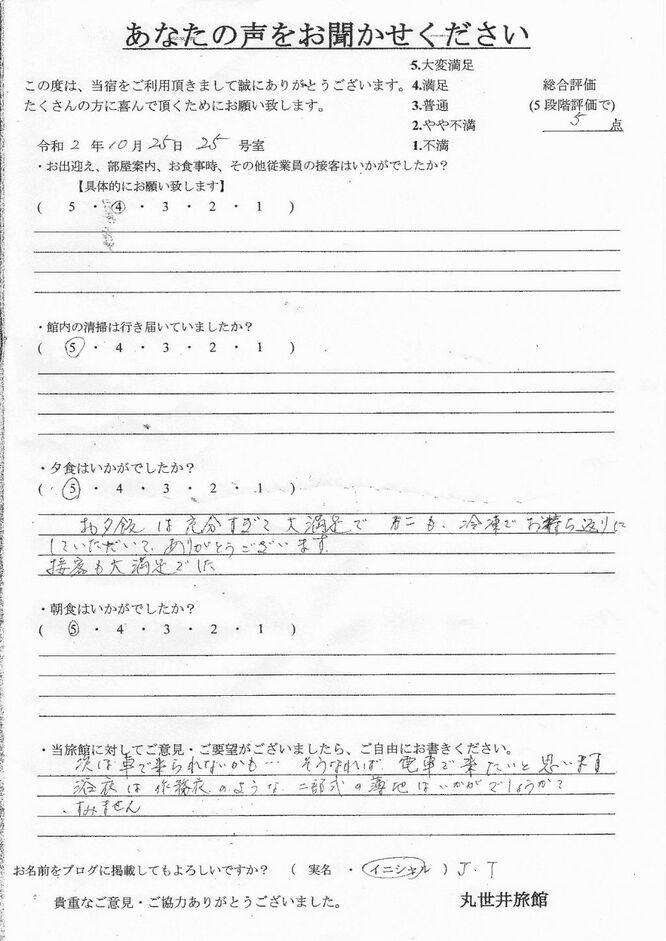 あなたの声をお聞かせください
この度は、当宿をご利用頂きまして誠にありがとうございます。
たくさんの方に喜んで頂くためにお願い致します。
5.大変満足
4.満足
3.普通
2.やや不満
1.不満
総合評価
(5段階評価で)
5 点
令和 2 年 10 月 25 日 25 号室
・お出迎え、部屋案内、お食事時、その他従業員の接客はいかがでしたか?
【具体的にお願い致します】
( 5 ・ 4 ・ 3 ・ 2 ・ 1 )
・館内の清掃は行き届いていましたか?
( 5 ・ 4 ・ 3 ・ 2 ・ 1 )
・夕食はいかがでしたか?
( 5 ・ 4 ・ 3 ・ 2 ・ 1 )
お夕飯は充分すぎて大満足で カニも、冷凍でお持ち送りに
していただいて、ありがとうございます。
接客も大満足でした
・朝食はいかがでしたか?
( 5 ・ 4 ・ 3 ・ 2 ・ 1 )
・当旅館に対してご意見・ご要望がございましたら、ご自由にお書きください。
次は車で来られないかも… そうなれば、電車で来たいと思います
浴衣は作務衣のような 二部式の薄地はいかがでしょうか?
・すみません
お名前をブログに掲載してもよろしいですか? ( 実名 ・ イニシャル ) J.T
貴重なご意見・ご協力ありがとうございました。
丸世井旅館